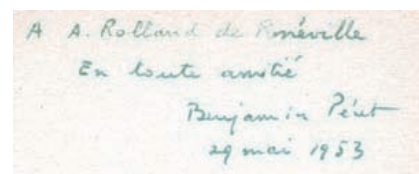 A A. Rolland de Renéville
En toute amitié
Benjamin Péret
29 mai 1953